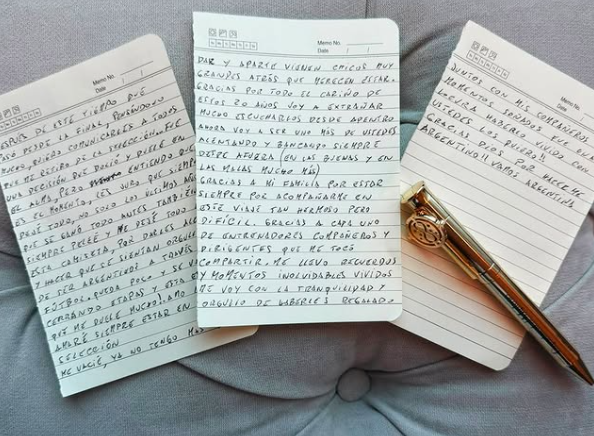 Memo No.
Date / /
DE ESTE TIEMPO QUE
PASO DESDE LA FINAL, PENSANDO
MUCHO, QUIERO COMUNICARLES A TODOS
QUE ME RETIRO DE LA SELECCION. FUE
UNA DECISION QUE DUELE Y DUELE EN
EL ALMA, PERO ENTIENDO QUE
ES EL MOMENTO. LES JURO QUE SIEMPRE
DEJÉ TODO, NO SOLO LOS ULTIMOS AÑOS
QUE SE GANO TODO ANTES TAMBIÉN
SIEMPRE PELEÉ Y ME DEJÉ TODO
ESTA CAMISETA, POR DARLES
Y HACER QUE SE SIENTAN
DE SER ARGENTINO A TRAVÉS
FÚTBOL. QUEDA POCO Y SE VA
CERRANDO ETAPAS Y ESTA ES
QUE ME DUELE MUCHO!! AMO
AMARÉ SIEMPRE ESTAR EN
SELECCIÓN
ME VACIÉ, YA NO TENGO MÁS
Memo No.
Date / /
DAR Y APARTE VIENEN CHICOS MUY
GRANDES ATRÁS QUE MERECEN ESTAR.
GRACIAS POR TODO EL CARIÑO DE
ESTOS 20 AÑOS VOY A EXTRAÑAR
MUCHO ESCUCHARLOS DESDE ADENTRO
AHORA VOY A SER UNO MÁS DE USTEDES
ALENTANDO Y BANCANDO SIEMPRE
DESDE AFUERA (EN LAS BUENAS Y EN
LAS MALAS MUCHO MÁS)
GRACIAS A MI FAMILIA POR ESTAR
SIEMPRE POR ACOMPAÑARME EN
ESTE VIAJE TAN HERMOSO PERO
DIFÍCIL. GRACIAS A CADA UNO
DE ENTRENADORES COMPAÑEROS Y
DIRIGENTES QUE ME TOCÓ
COMPARTIR. ME LLEVO RECUERDOS
Y MOMENTOS INOLVIDABLES VIVIDOS
ME VOY CON LA TRANQUILIDAD Y
ORGULLO DE HABERLES REGALADO
Memo No.
Date / /
JUNTOS CON MIS COMPAÑEROS
MOMENTOS SOÑADOS FUE UNA
LOCURA HABERLO VIVIDO CON
USTEDES LOS QUIERO!!
GRACIAS DIOS POR HACERME
ARGENTINO!! VAMOS ARGENTINA